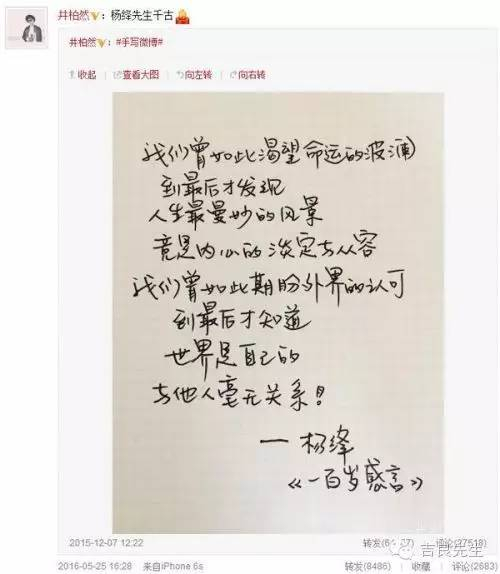 井柏然V：杨绛先生千古
井柏然V：#手写微博#
收起 查看大图 向左转 向右转
我们曾如此渴望命运的波澜
到最后才发现
人生最曼妙的风景
竟是内心的淡定与从容
我们曾如此期盼外界的认可
到最后才知道
世界是自己的
与他人毫无关系！
一杨绛
《一百岁感言》
2015-12-07 12:22 评论(27518)
2016-05-25 16:28 来自iPhone 6s 转发(8486) 收藏 评论(2683)
吉良先生